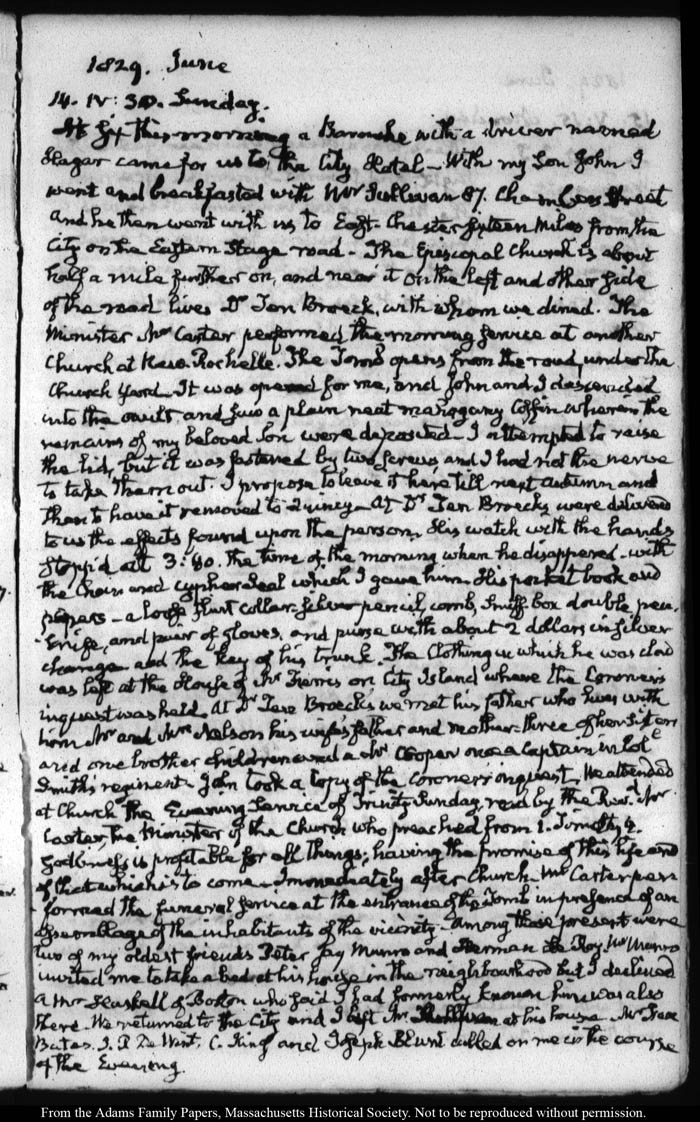 1829. June
14. IV: 30. Sunday.
At six this morning a Barouche with a driver named
Hagar came for us to the City Hotel – With my Son John I
went and breakfasted with Mr Sullivan 87. Chambers Street
and he then went with us to East-Chester sixteen miles from the
City on the Eastern Stage road – The Episcopal Church is about
half a mile further on, and near it on the left and other side
of the road lives Dr Ten Broeck, with whom we dined. The
Minister Mr Carter performed the morning service at another
Church at New-Rochelle. The Tomb opens from the road, under the
Church yard – It was opened for me, and John and I descended
into the vault and saw a plain neat mahogany Coffin wherein the
remains of my beloved Son were deposited – I attempted to raise
the lid, but it was fastened by two screws and I had not the nerve
to take them out. I propose to leave it here till next autumn and
then to have it removed to Quincy – At Dr Ten Broeck's were delivered
to us the effects found upon the person. His watch with the hands
stopp'd at 3:40. the time of the morning when he disappeared – with
the Chain and cypher seal which I gave him. His pocket book and
papers – a loose shirt collar – silver pencil, comb, snuff-box double pen-
knife, and pair of gloves, and purse with about 2 dollars in silver
change and the key of his trunk. The Clothing in which he was clad
was left at the House of Mr Ferris on City Island where the Coroner's
inquest was held. At Dr Tene Broeck's we met his father who lives with
him Mr and Mrs Nelson his wife's father and mother – three of her sisters
and one brother children and a Mr Cooper once a Captain in Cole
Smith's regiment. John took a copy of the Coroner's inquest – We attended
at Church the Evening Service of Trinity Sunday, read by the Revd Mr
Carter, the Minister of the Church who preached from 1. Timothy 4.
Godliness is profitable for all things; having the promise of this life and
of that which is to come – Immediately after Church Mr Carter per-
formed the funeral service at the entrance of the Tomb in presence of an
assemblage of the inhabitants of the vicinity – among those present were
two of my oldest friends Peter Jay Munro and Herman Le Roy. Mr Munro
invited me to take a bed at his house in the neighbourhood but I declined
A Mr Haskell of Boston who said I had formerly known him was also
there. We returned to the City and I left Mr Sullivan at his house. Mr
Bates. J. P De Wint, C. King and Joseph Blunt called on me in the course
of the Evening.
From the Adams Family Papers, Massachusetts Historical Society. Not to be reproduced without permission.